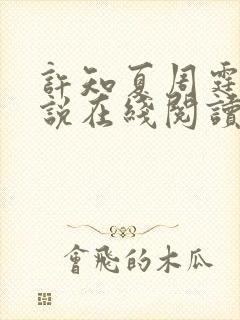 許知夏周霆
說在綫閱讀
會飛的木瓜